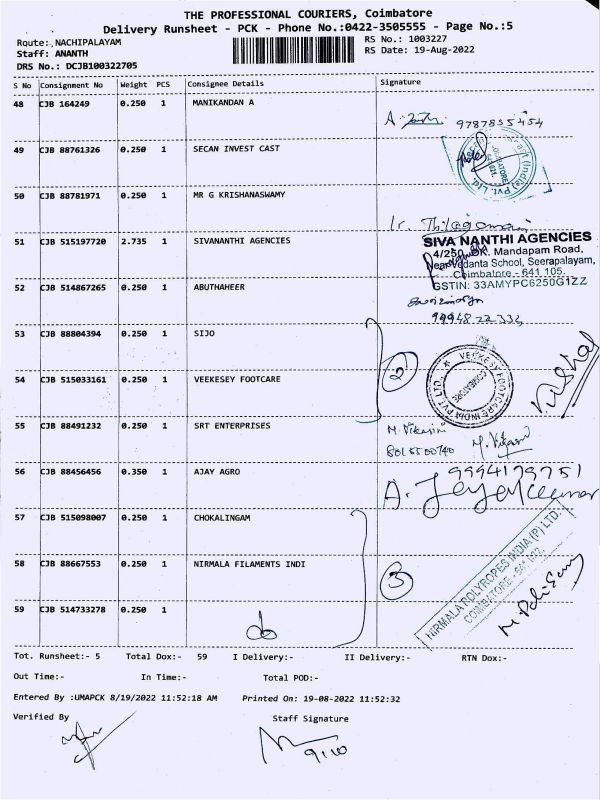 THE PROFESSIONAL COURIERS, Coimbatore
Delivery Runsheet - PCK - Phone No.:0422-3505555 - Page No.:5
Route: NACHIPALAYAM
RS No.: 1003227
Staff: ANANTH
RS Date: 19-Aug-2022
DRS No.: DCJB100322705
S No Consignment No Weight PCS Consignee Details Signature
48 CJB 164249 0.250 1 MANIKANDAN A
A.
49 CJB 88761326 0.250 1 SECAN INVEST CAST
(India) Pvt. Ltd.
COIMBATORE
50 CJB 88781971 0.250 1 MR G KRISHANASWMY
51 CJB 515197720 2.735 1 SIVANANTHI AGENCIES
SIVA NANTHI AGENCIES
Mandapam Road,
Vedanta School, Seerapalayam,
Coimbatore - 641 105.
GSTIN: 33AMYPC6250G1ZZ
52 CJB 514867265 0.250 1 ABUTHAHEER
99948 22 333
53 CJB 88804394 0.250 1 SIJO
2
VEEKESY FOOTCARE INDIA PVT LTD
COIMBATORE
Vishal
54 CJB 515033161 0.250 1 VEEKESEY FOOTCARE
55 CJB 88491232 0.250 1 SRT ENTERPRISES
56 CJB 88456456 0.350 1 AJAY AGRO
9994179751
A. Jayakumar
57 CJB 515098007 0.250 1 CHOKALINGAM
58 CJB 88667553 0.250 1 NIRMALA FILAMENTS INDI
3
NIRMALA POLYROPES INDIA (P) LTD.
COIMBATORE
59 CJB 514733278 0.250 1
Tot. Runsheet:- 5 Total Dox:- 59 I Delivery:- II Delivery:- RTN Dox:-
Out Time:- In Time:- Total POD:-
Entered By :UMAPCK 8/19/2022 11:52:18 AM Printed On: 19-08-2022 11:52:32
Verified By Staff Signature